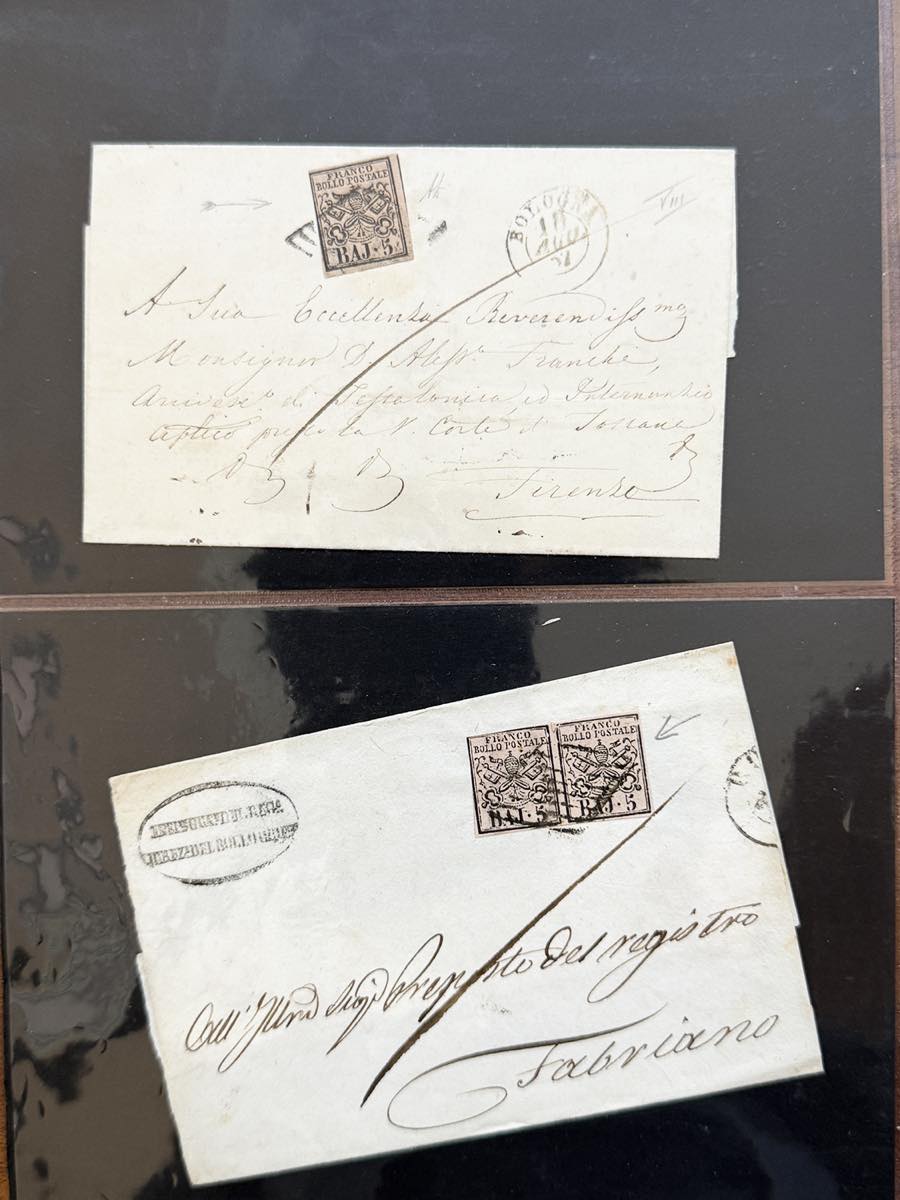 FRANCO
BOLLO POSTALE
BAJ. 5
BOLOGNA
10
AGO
57
VIII
A Sua Eccellenza Reverendiss.ma
Monsignor D. Aless.o Franchi,
di Tessalonica, ed Internunzio
presso la Corte di Toscana
Firenze
FRANCO
BOLLO POSTALE
BAJ. 5
FRANCO
BOLLO POSTALE
BAJ. 5
DEL BOLLO
All' Illmo Sig. Preposto del registro
Fabriano